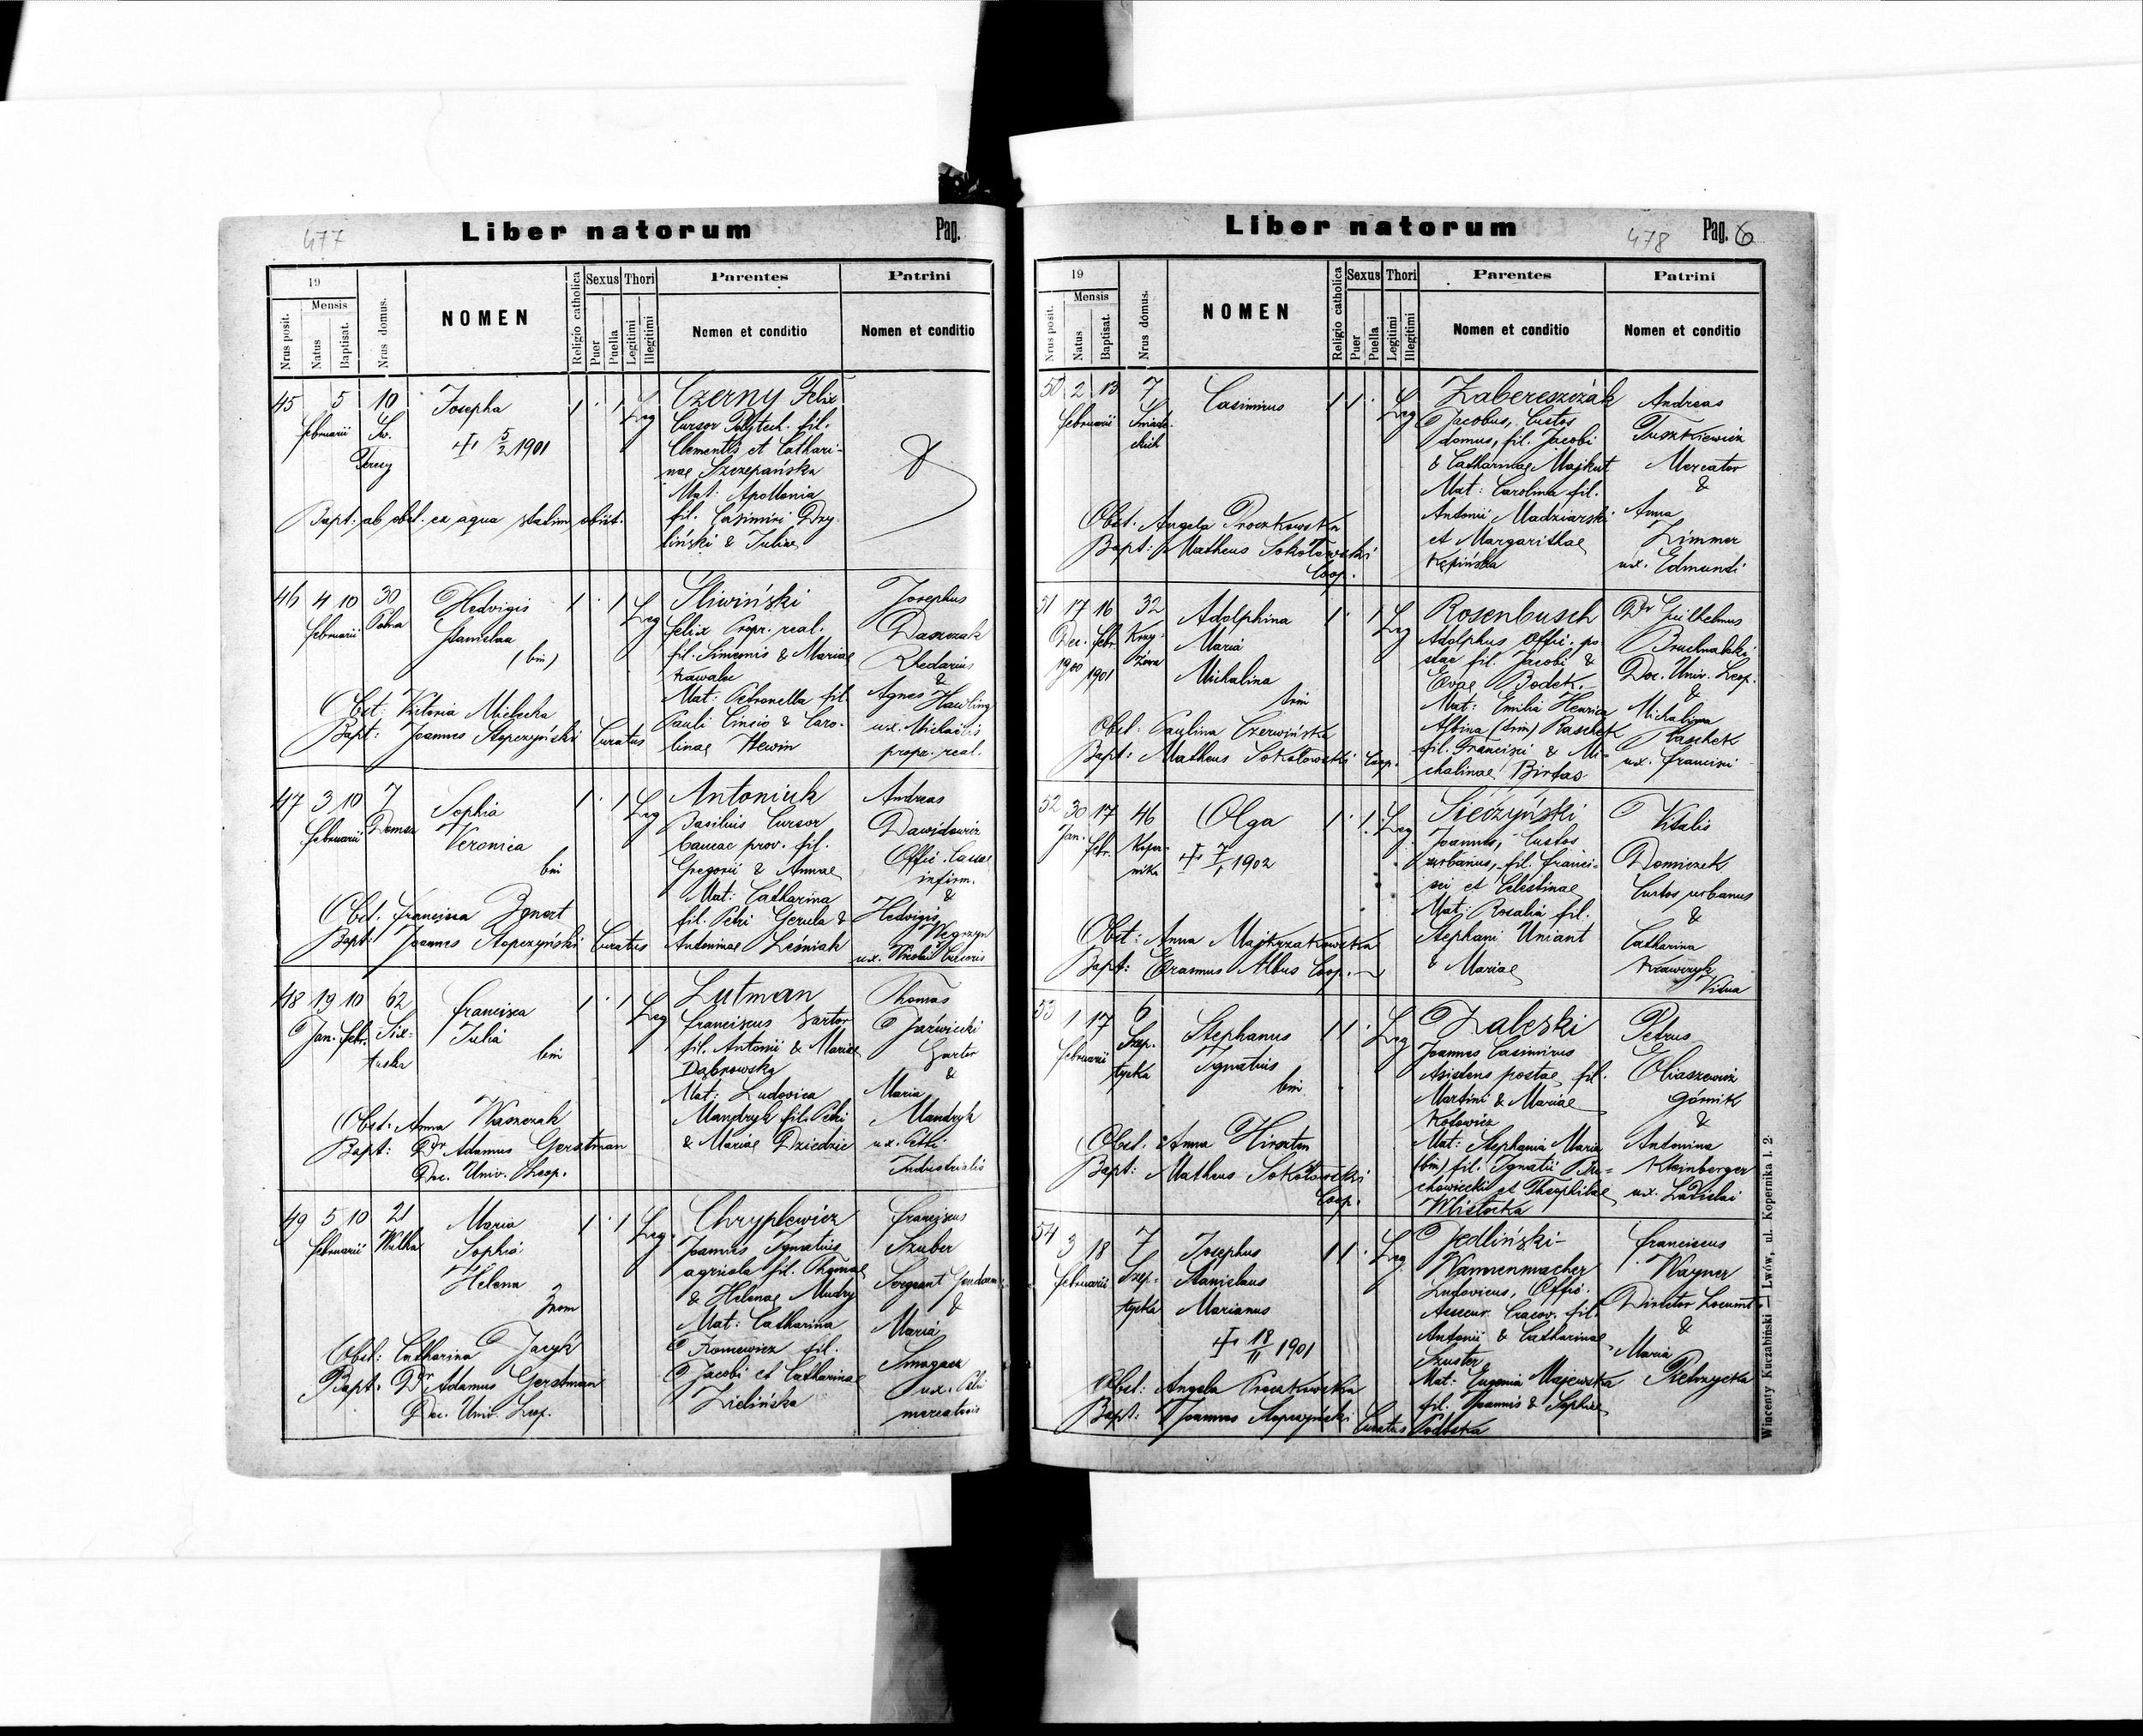 477
Liber natorum
Pag.
19
Mensis
Nrus posit.
Natus
Baptisat.
Nrus domus.
NOMEN
Religio catholica
Sexus
Puer
Puella
Thori
Legitimi
Illegitimi
Parentes
Nomen et conditio
Patrini
Nomen et conditio
45 5 10 Josepha 1 · 1 Leg Czerny Felix
Februarii Św. Cursor Polytech. fil.
Teresy ✝ 5/2 1901 Clementis et Cathari-
nae Szczepańska
Mat: Apollonia
Bapt: ab obst. ex aqua statim obiit. fil. Casimiri Dry
liński & Juliae
46 4 10 30 Hedvigis 1 · 1 Leg Śliwiński Josephus
Februarii Polna Stanislaa Felix Propr. real. Daszczak
(bin) fil. Simeonis & Mariae Rhedarius
Kawalec &
Mat: Petronella fil. Agnes Hawling
Obst: Victoria Michecka Pauli & Caro- ux. Michaëlis
Bapt: Joannes Stopczyński Curatus linae Hewin propr. real.
47 3 10 7 Sophia 1 · 1 Leg Antoniuk Andreas
Februarii Veronica Basilius Cursor Dawidowicz
bin Caucae prov. fil. Offic. Cassae
Gregorii & Annae infirm.
Mat: Catharina &
Obst. Francisca fil. Petri Gerula & Hedvigis
Bapt: Joannes Stopczyński Curatus Antoninae Leśniak Węgrzyn
ux. Nicolai
48 19 10 62 Francisca 1 · 1 Leg Lutman Thomas
Jan. Febr. Six- Julia Franciscus Sartor Jaźwiecki
tuska bin fil. Antonii & Mariae Sartor
Dąbrowska &
Mat: Ludovica Maria
Obst: Anna Waszczak Mandryk fil. Petri Mandryk
Bapt: Dr Adamus Gerstman & Mariae Dziedzic ux. Petri
Doc. Univ. Leop. Industrialis
49 5 10 21 Maria 1 · 1 Leg. Chryplewicz Franciscus
Februarii Wulka Sophia Joannes Ignatius Szuber
Helena agricola fil. Thomae Sergeant Gendarm.
3nom & Helenae Mudry &
Mat: Catharina Maria
Obst: Catharina Jacyk fil. Smagacz
Bapt: Dr Adamus Gerstman Jacobi et Catharinae ux. Petri
Doc. Univ. Leop. Zielińska mercatoris
Liber natorum
478
Pag. 6
19
Mensis
Nrus posit.
Natus
Baptisat.
Nrus domus.
NOMEN
Religio catholica
Sexus
Puer
Puella
Thori
Legitimi
Illegitimi
Parentes
Nomen et conditio
Patrini
Nomen et conditio
50 2 13 7 Casimirus 1 1 · Leg Zabereszczak Andreas
Februarii Śniade- Jacobus, Custos Tuszkiewicz
ckich domus, fil. Jacobi Mercator
& Catharinae Majkut &
Mat: Carolina fil. Anna
Obst. Angela Proczkowska Antonii Madziarski Zimmer
Bapt: Matheus Sokołowski et Margarithae ux. Edmundi
Coop. Kępińska
51 17 16 32 Adolphina 1 · 1 Leg Rosenbusch Dr Guilhelmus
Dec. Febr. Krzy- Maria Adolphus Offic. po Bruchnalski
1900 1901 żowa Michalina stae fil. Jacobi & Doc. Univ. Leop.
trin Evae Bodek. &
Mat: Emilia Henrica Michalina
Obst: Paulina Czerwińska Albina (trin) Raschek Raschek
Bapt: Matheus Sokołowski Coop. fil. Francisci & Mi- ux. Francisci
chalinae Birtas
52 30 17 46 Olga 1 · 1 Leg Sieczyński Vitalis
Jan. Febr. Koper- ✝ 7/1 1902 Joannes, Custos Domiczek
nika urbanus, fil. Franci- Custos urbanus
sci et Celestinae &
Mat: Rosalia fil. Catharina
Obst: Anna Majkrzakowska Stephani Uniant Krawczyk
Bapt: Erasmus Albus Coop. & Mariae Vidua
53 1 17 6 Stephanus 1 1 · Leg Zaleski Petrus
Februarii Szep- Ignatius Joannes Casimirus Eliaszewicz
tycka bin Asistens postae, fil. Górnik
Martini & Mariae &
Kotowicz Antonina
Obst: Anna Mat: Stephania Maria Kleinberger
Bapt: Matheus Sokołowski (bin) fil. Ignatii Bru- ux. Ladislai
Coop. chowiecki et Theophilae
Wlistocka
54 3 18 7 Josephus 1 1 · Leg Jedliński- Franciscus
Februarii Szep- Stanislaus Wannenmacher Wayner
tycka Marianus Ludovicus, Offic. Director
✝ 18/II 1901 Assecur. Cracov. fil. &
Antonii & Catharinae Maria
Szuster Pietrzycka
Obst: Angela Proczkowska Mat: Eugenia Majewska
Bapt: Joannes Stopczyński fil. Joannis & Sophiae
Curatus Podolska
Wincenty Kuczabiński — Lwów, ul. Kopernika l. 2.